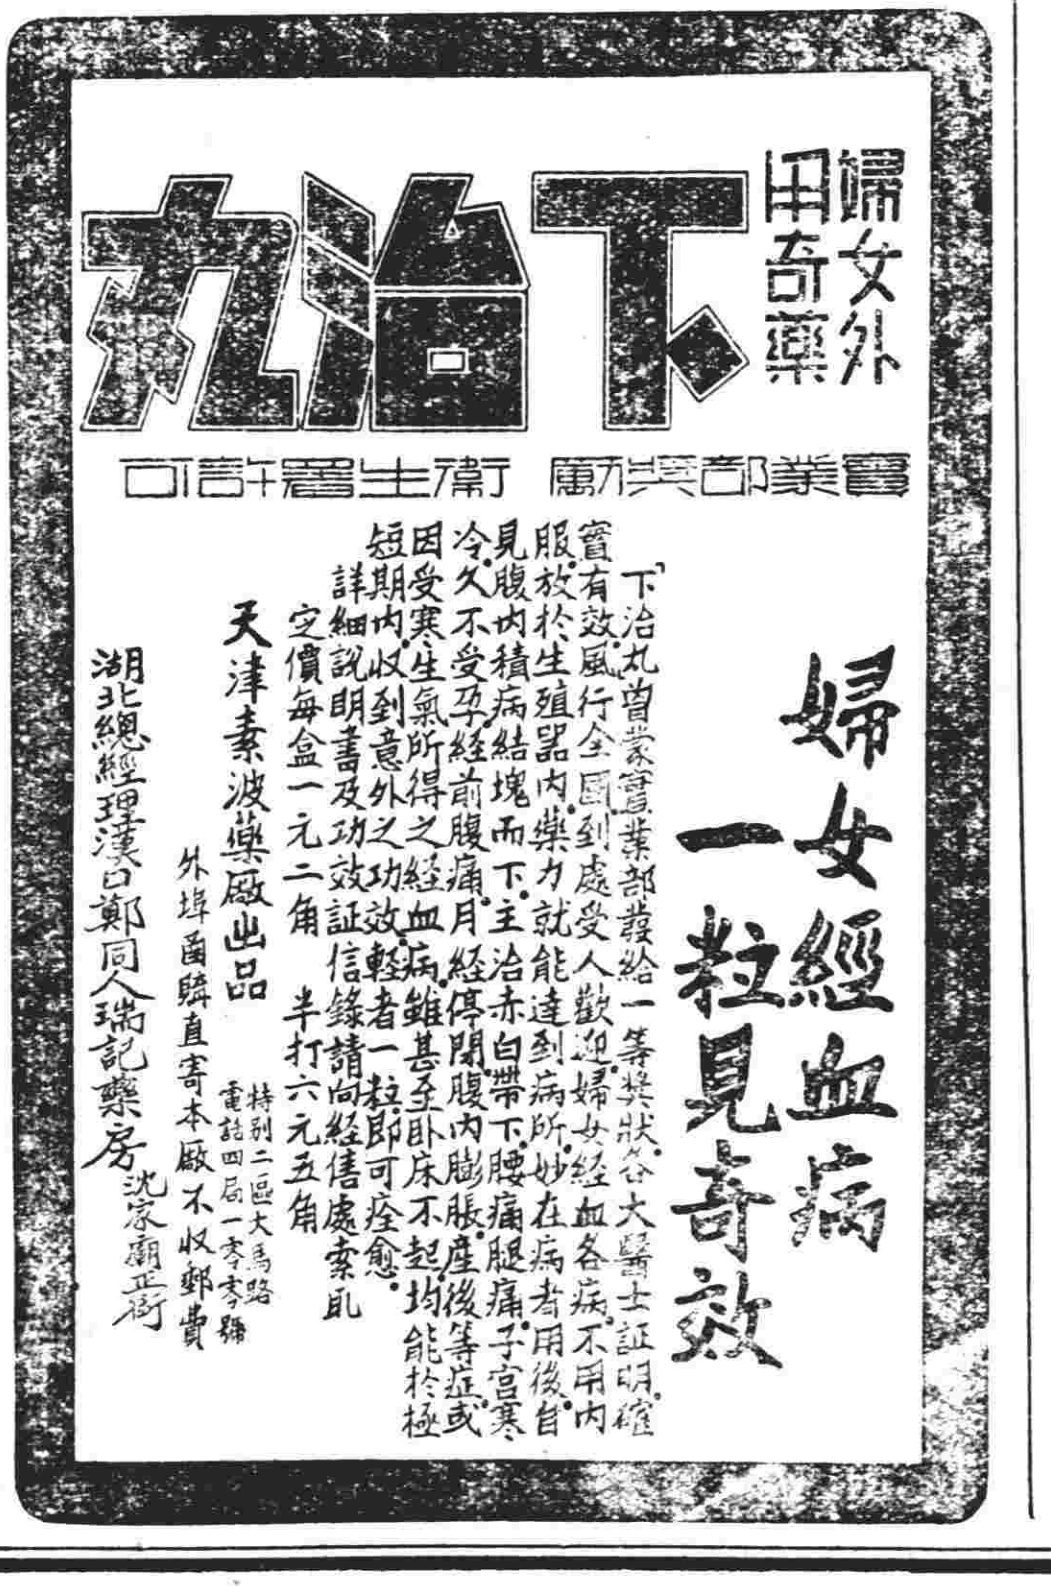 婦女外
用奇藥
下治丸
實業部奬勵 衛生署許可
婦女經血病
一粒見奇效
「下治丸」曾蒙實業部發給一等奬狀。各大醫士証明。確
實有效。風行全國。到處受人歡迎。婦女経血各病。不用内
服。放於生殖器内。藥力就能達到病所。妙在病者用後。自
見腹内積病結塊而下。主治赤白帶下。腰痛腿痛。子宮寒
冷。久不受孕。経前腹痛。月経停閉。腹内膨脹。産後等症。或
因受寒生氣所得之経血病。雖甚至卧床不起。均能於極
短期内。收到意外之功效。輕者一粒。即可痊愈。
詳細說明書及功效証信錄請向経售處索取
定價每盒一元二角 半打六元五角
天津素波藥廠出品
特别二區大馬路
電話四局一零零號
外埠函購直寄本廠不收郵費
湖北總經理漢口鄭同人瑞記藥房
沈家廟正街